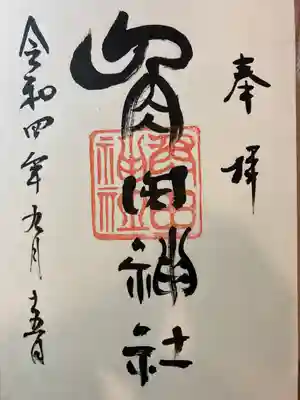 奉拝
田神社
令和四年九月十五日